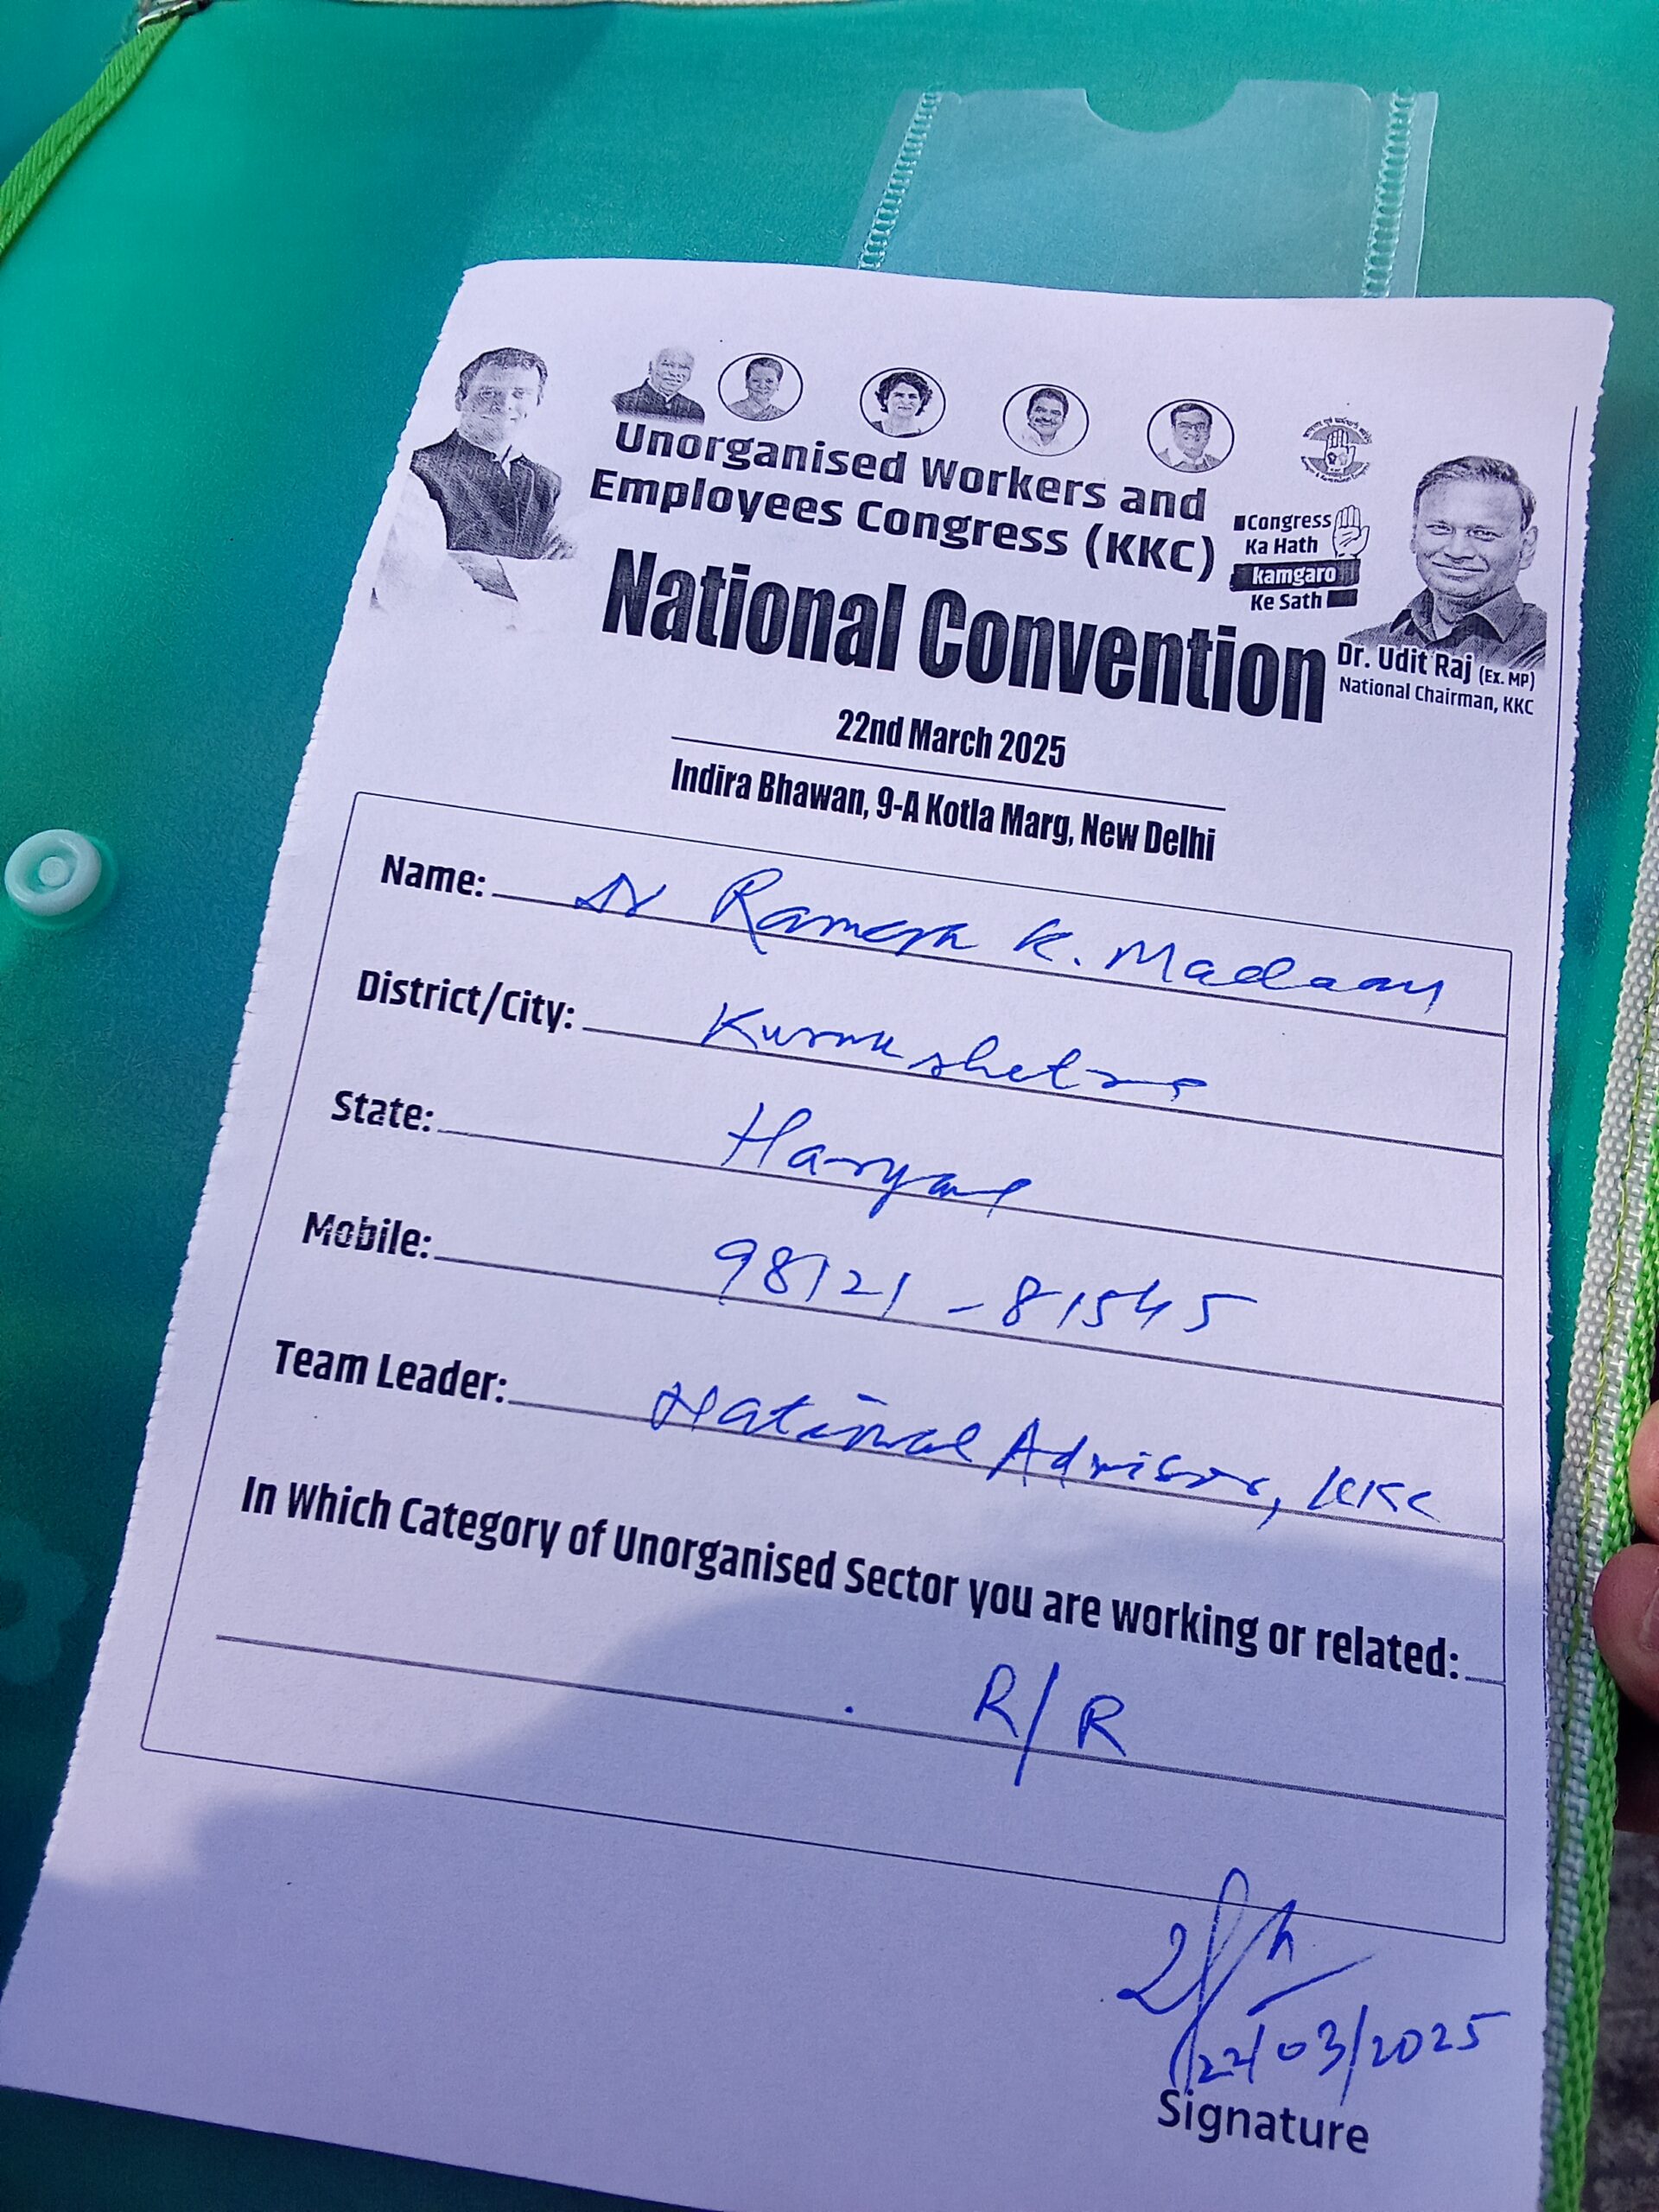 Unorganised Workers and
Employees Congress (KKC)
Congress
Ka Hath
kamgaro
Ke Sath
National Convention
Dr. Udit Raj (Ex. MP)
National Chairman, KKC
22nd March 2025
Indira Bhawan, 9-A Kotla Marg, New Delhi
Name: Dr Ramesh K. Madaan
District/City: Kurukshetra
State: Haryana
Mobile: 98121-81545
Team Leader: National Advisor, KKC
In Which Category of Unorganised Sector you are working or related:
R/R
22/03/2025
Signature